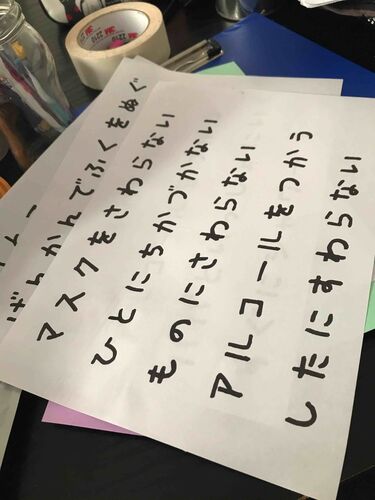 げんかんでふくをぬぐ
マスクをさわらない
ひとにちかづかない
ものにさわらない
アルコールをつかう
したにすわらない